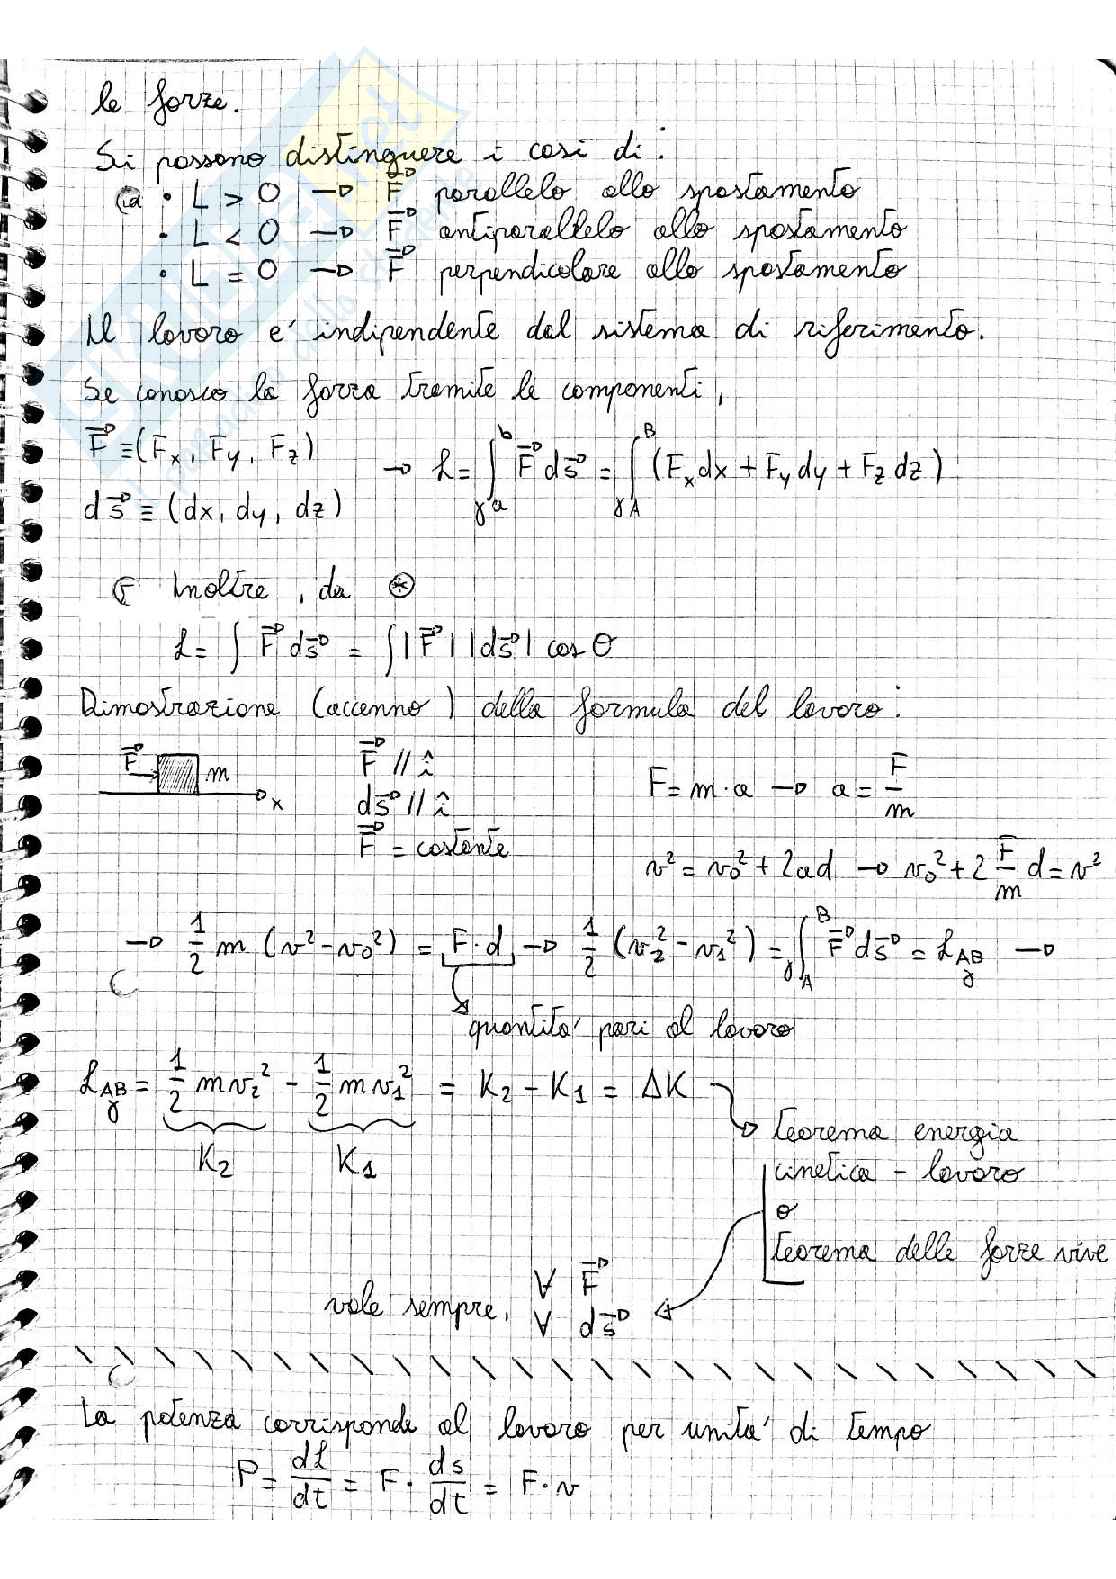 le forze.
Si possono distinguere i casi di:
• L > 0 → F⃗ parallelo allo spostamento
• L < 0 → F⃗ antiparallelo allo spostamento
• L = 0 → F⃗ perpendicolare allo spostamento
Il lavoro e' indipendente dal sistema di riferimento.
Se conosco la forza tramite le componenti,
F⃗ ≡ (Fx, Fy, Fz)
ds⃗ ≡ (dx, dy, dz)
→ L = ∫γ a b F⃗ ds⃗ = ∫γ A B (Fx dx + Fy dy + Fz dz)
Inoltre, da ⊛
L = ∫ F⃗ ds⃗ = ∫ |F⃗| |ds⃗| cos θ
Dimostrazione (accenno) della formula del lavoro:
F⃗ m x
F⃗ // î
ds⃗ // î
F⃗ = costante
F = m · a → a = F/m
v² = v₀² + 2ad → v₀² + 2 F/m d = v²
→ 1/2 m (v² - v₀²) = F · d → 1/2 (v₂² - v₁²) = ∫γ A B F⃗ ds⃗ = L AB γ →
quantita' pari al lavoro
L AB γ = 1/2 m v₂² - 1/2 m v₁² = K₂ - K₁ = ΔK
K₂ K₁
teorema energia
cinetica - lavoro
o
teorema delle forze vive
vale sempre, ∀ F⃗
∀ ds⃗
La potenza corrisponde al lavoro per unita' di tempo
P = dL/dt = F · ds/dt = F · v